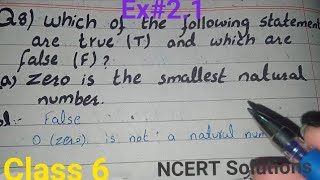 Ex#2.1
Q8) which of the following statement
are true (T) and which are
false (F)?
a) zero is the smallest natural
number.
False
0 (zero) is not a natural
Class 6
NCERT Solutions